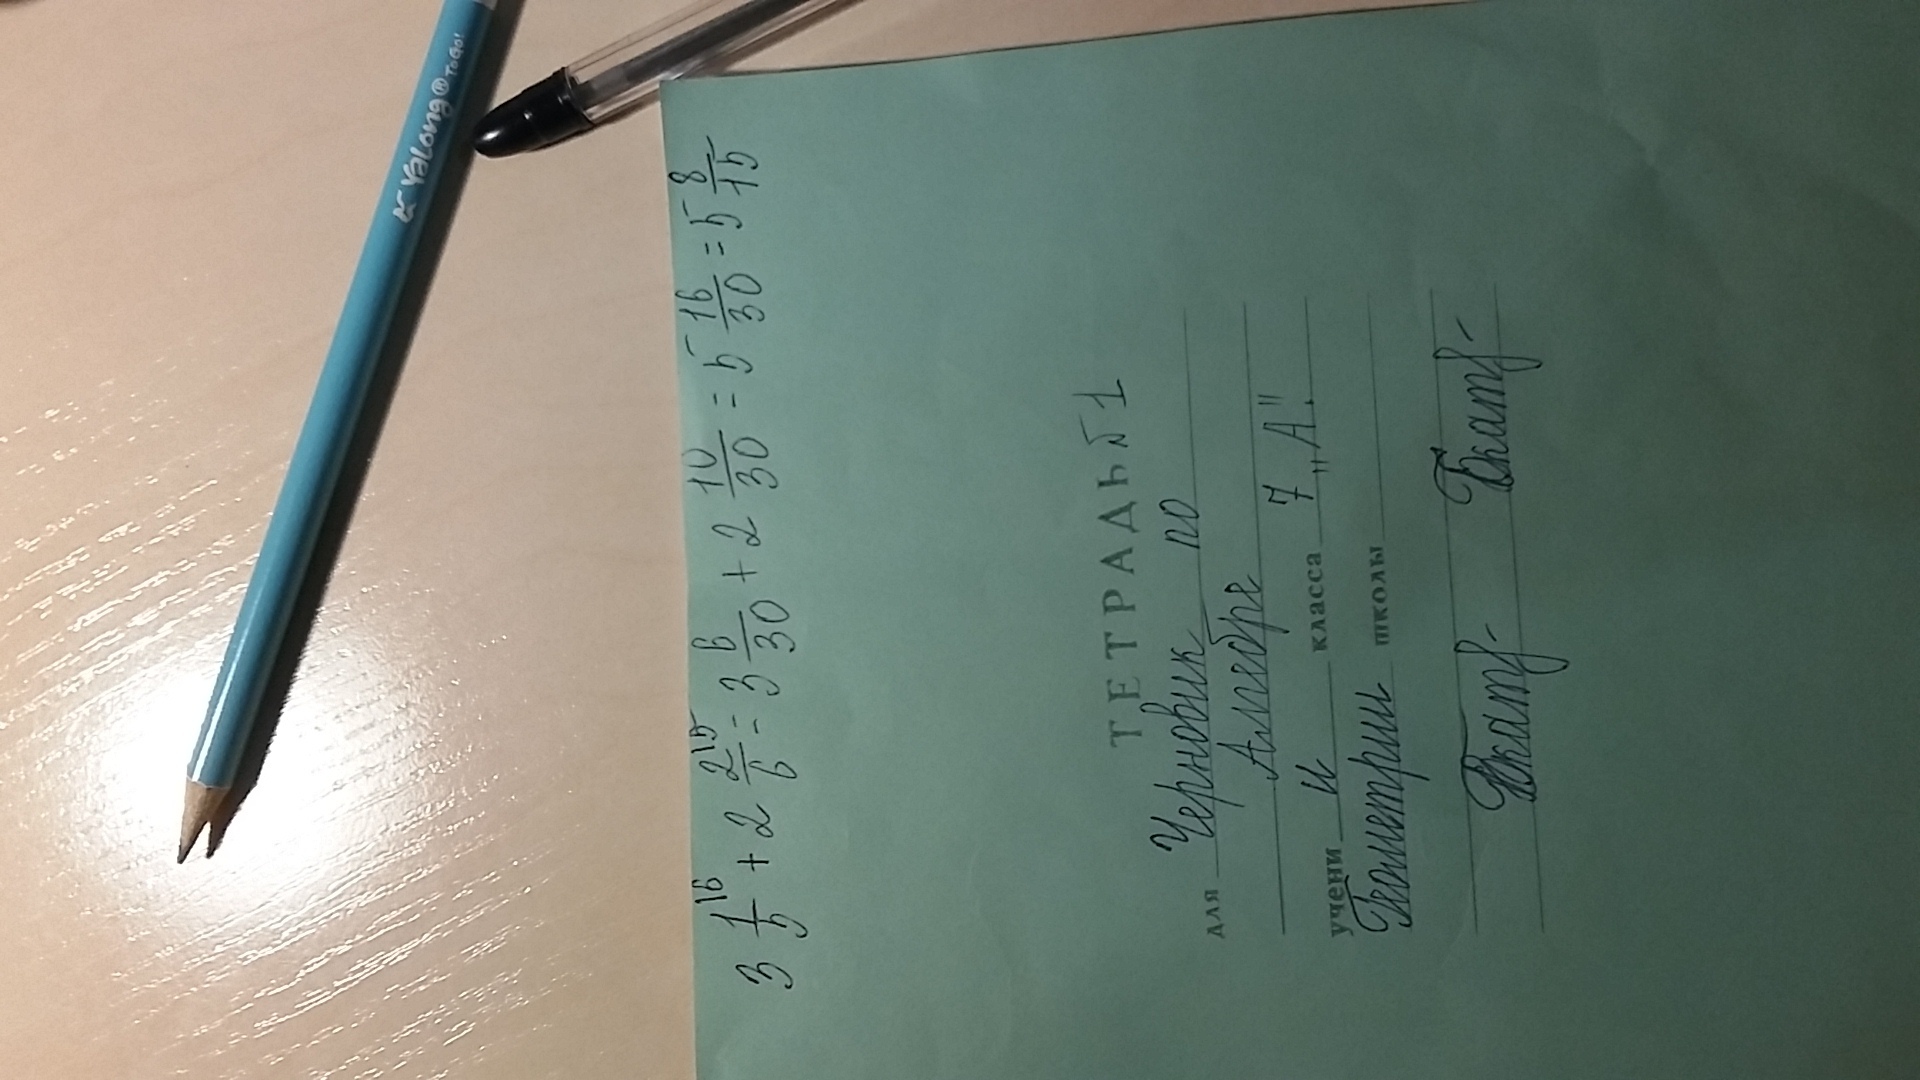 Yalong® ToGo!
3 1/5 |6 + 2 2/6 |5 = 3 6/30 + 2 10/30 = 5 16/30 = 5 8/15
ТЕТРАДЬ №1
для Черновик по
Алгебре
учени и класса 7 „А".
Геометрии школы